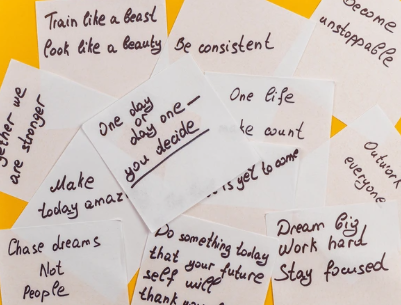 Train like a beast
look like a beauty
Be consistent
Become
unstoppable
together we
are stronger
One day
or
day one—
you decide
One life
ke count
Make
today amaz
is yet to come
Outwork
everyone
Chase dreams
Not
People
Do something today
that your future
self will
thank you
Dream big
Work hard
Stay focused